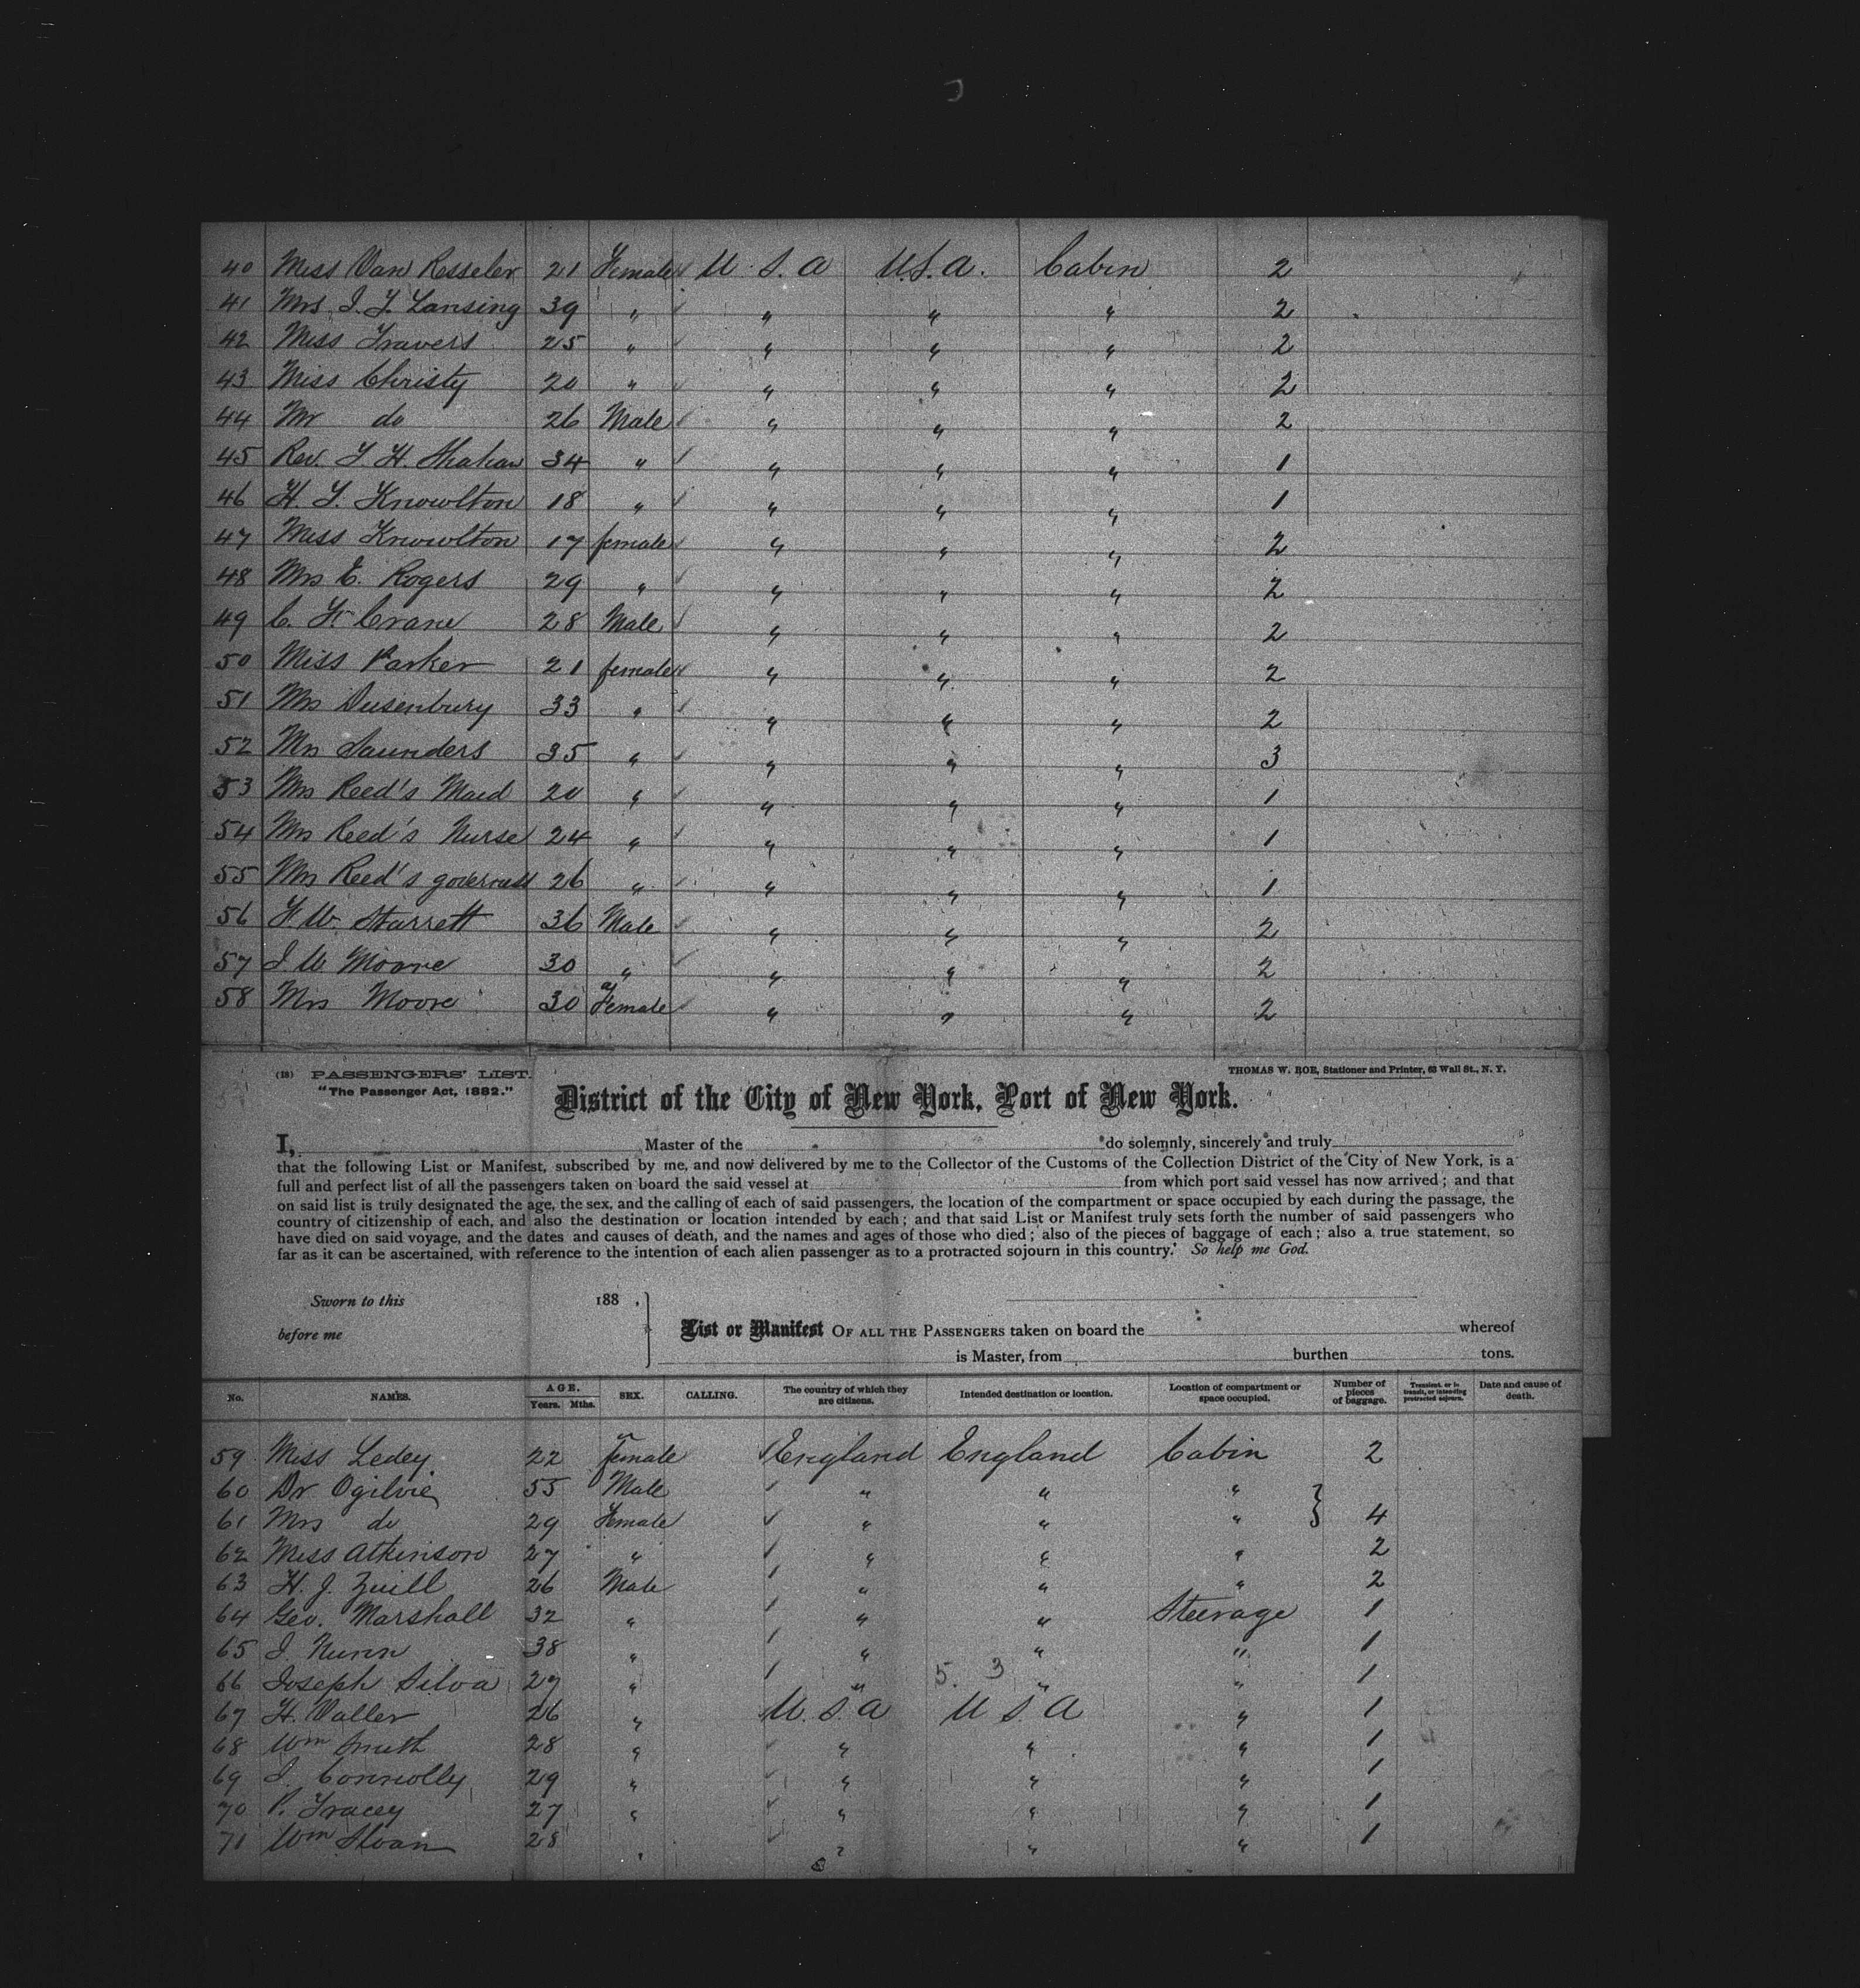 40 Miss Van Resseler 21 Female U.S.A U.S.A. Cabin 2
41 Mrs. I. Y. Lansing 39 " " " " 2
42 Miss Travers 25 " " " " 2
43 Miss Christy 20 " " " " 2
44 Mr do 26 Male " " " 2
45 Rev. T H. Shahan 34 " " " " 1
46 H. T. Knowlton 18 " " " " 1
47 Miss Knowlton 17 female " " " 2
48 Mrs E. Rogers 29 " " " " 2
49 C. H. Crane 28 Male " " " 2
50 Miss Parker 21 female " " " 2
51 Mrs Dusenbury 33 " " " " 2
52 Mrs Saunders 35 " " " " 3
53 Mrs Reed's Maid 20 " " " " 1
54 Mrs Reed's Nurse 24 " " " " 1
55 Mrs Reed's governess 26 " " " " 1
56 F. W. Starrett 36 Male " " " 2
57 J. W. Moore 30 " " " " 2
58 Mrs Moore 30 Female " " " 2
(18) PASSENGERS' LIST.
"The Passenger Act, 1882."
THOMAS W. ROE, Stationer and Printer, 63 Wall St., N. Y.
District of the City of New York, Port of New York.
I, Master of the do solemnly, sincerely and truly
that the following List or Manifest, subscribed by me, and now delivered by me to the Collector of the Customs of the Collection District of the City of New York, is a
full and perfect list of all the passengers taken on board the said vessel at from which port said vessel has now arrived; and that
on said list is truly designated the age, the sex, and the calling of each of said passengers, the location of the compartment or space occupied by each during the passage, the
country of citizenship of each, and also the destination or location intended by each; and that said List or Manifest truly sets forth the number of said passengers who
have died on said voyage, and the dates and causes of death, and the names and ages of those who died; also of the pieces of baggage of each; also a true statement, so
far as it can be ascertained, with reference to the intention of each alien passenger as to a protracted sojourn in this country. So help me God.
Sworn to this 188 ,
before me
List or Manifest OF ALL THE PASSENGERS taken on board the whereof
is Master, from burthen tons.
No. NAMES. AGE. Years. Mths. SEX. CALLING. The country of which they are citizens. Intended destination or location. Location of compartment or space occupied. Number of pieces of baggage. Transient, or in transit, or intending protracted sojourn. Date and cause of death.
59 Miss Ledey 22 female England England Cabin 2
60 Dr Ogilvie 55 Male " " "
61 Mrs do 29 Female " " " 4
62 Miss Atkinson 27 " " " " 2
63 H. J. Zuill 26 Male " " " 2
64 Geo. Marshall 32 " " " Steerage 1
65 J. Nunn 38 " " " " 1
66 Joseph Silva 27 " " " " 1
5. 3
67 H. Valler 26 " U.S.A U S. A " 1
68 Wm Smith 28 " " " " 1
69 J. Connolly 29 " " " " 1
70 P. Tracey 27 " " " " 1
71 Wm Sloan 28 " " " " 1